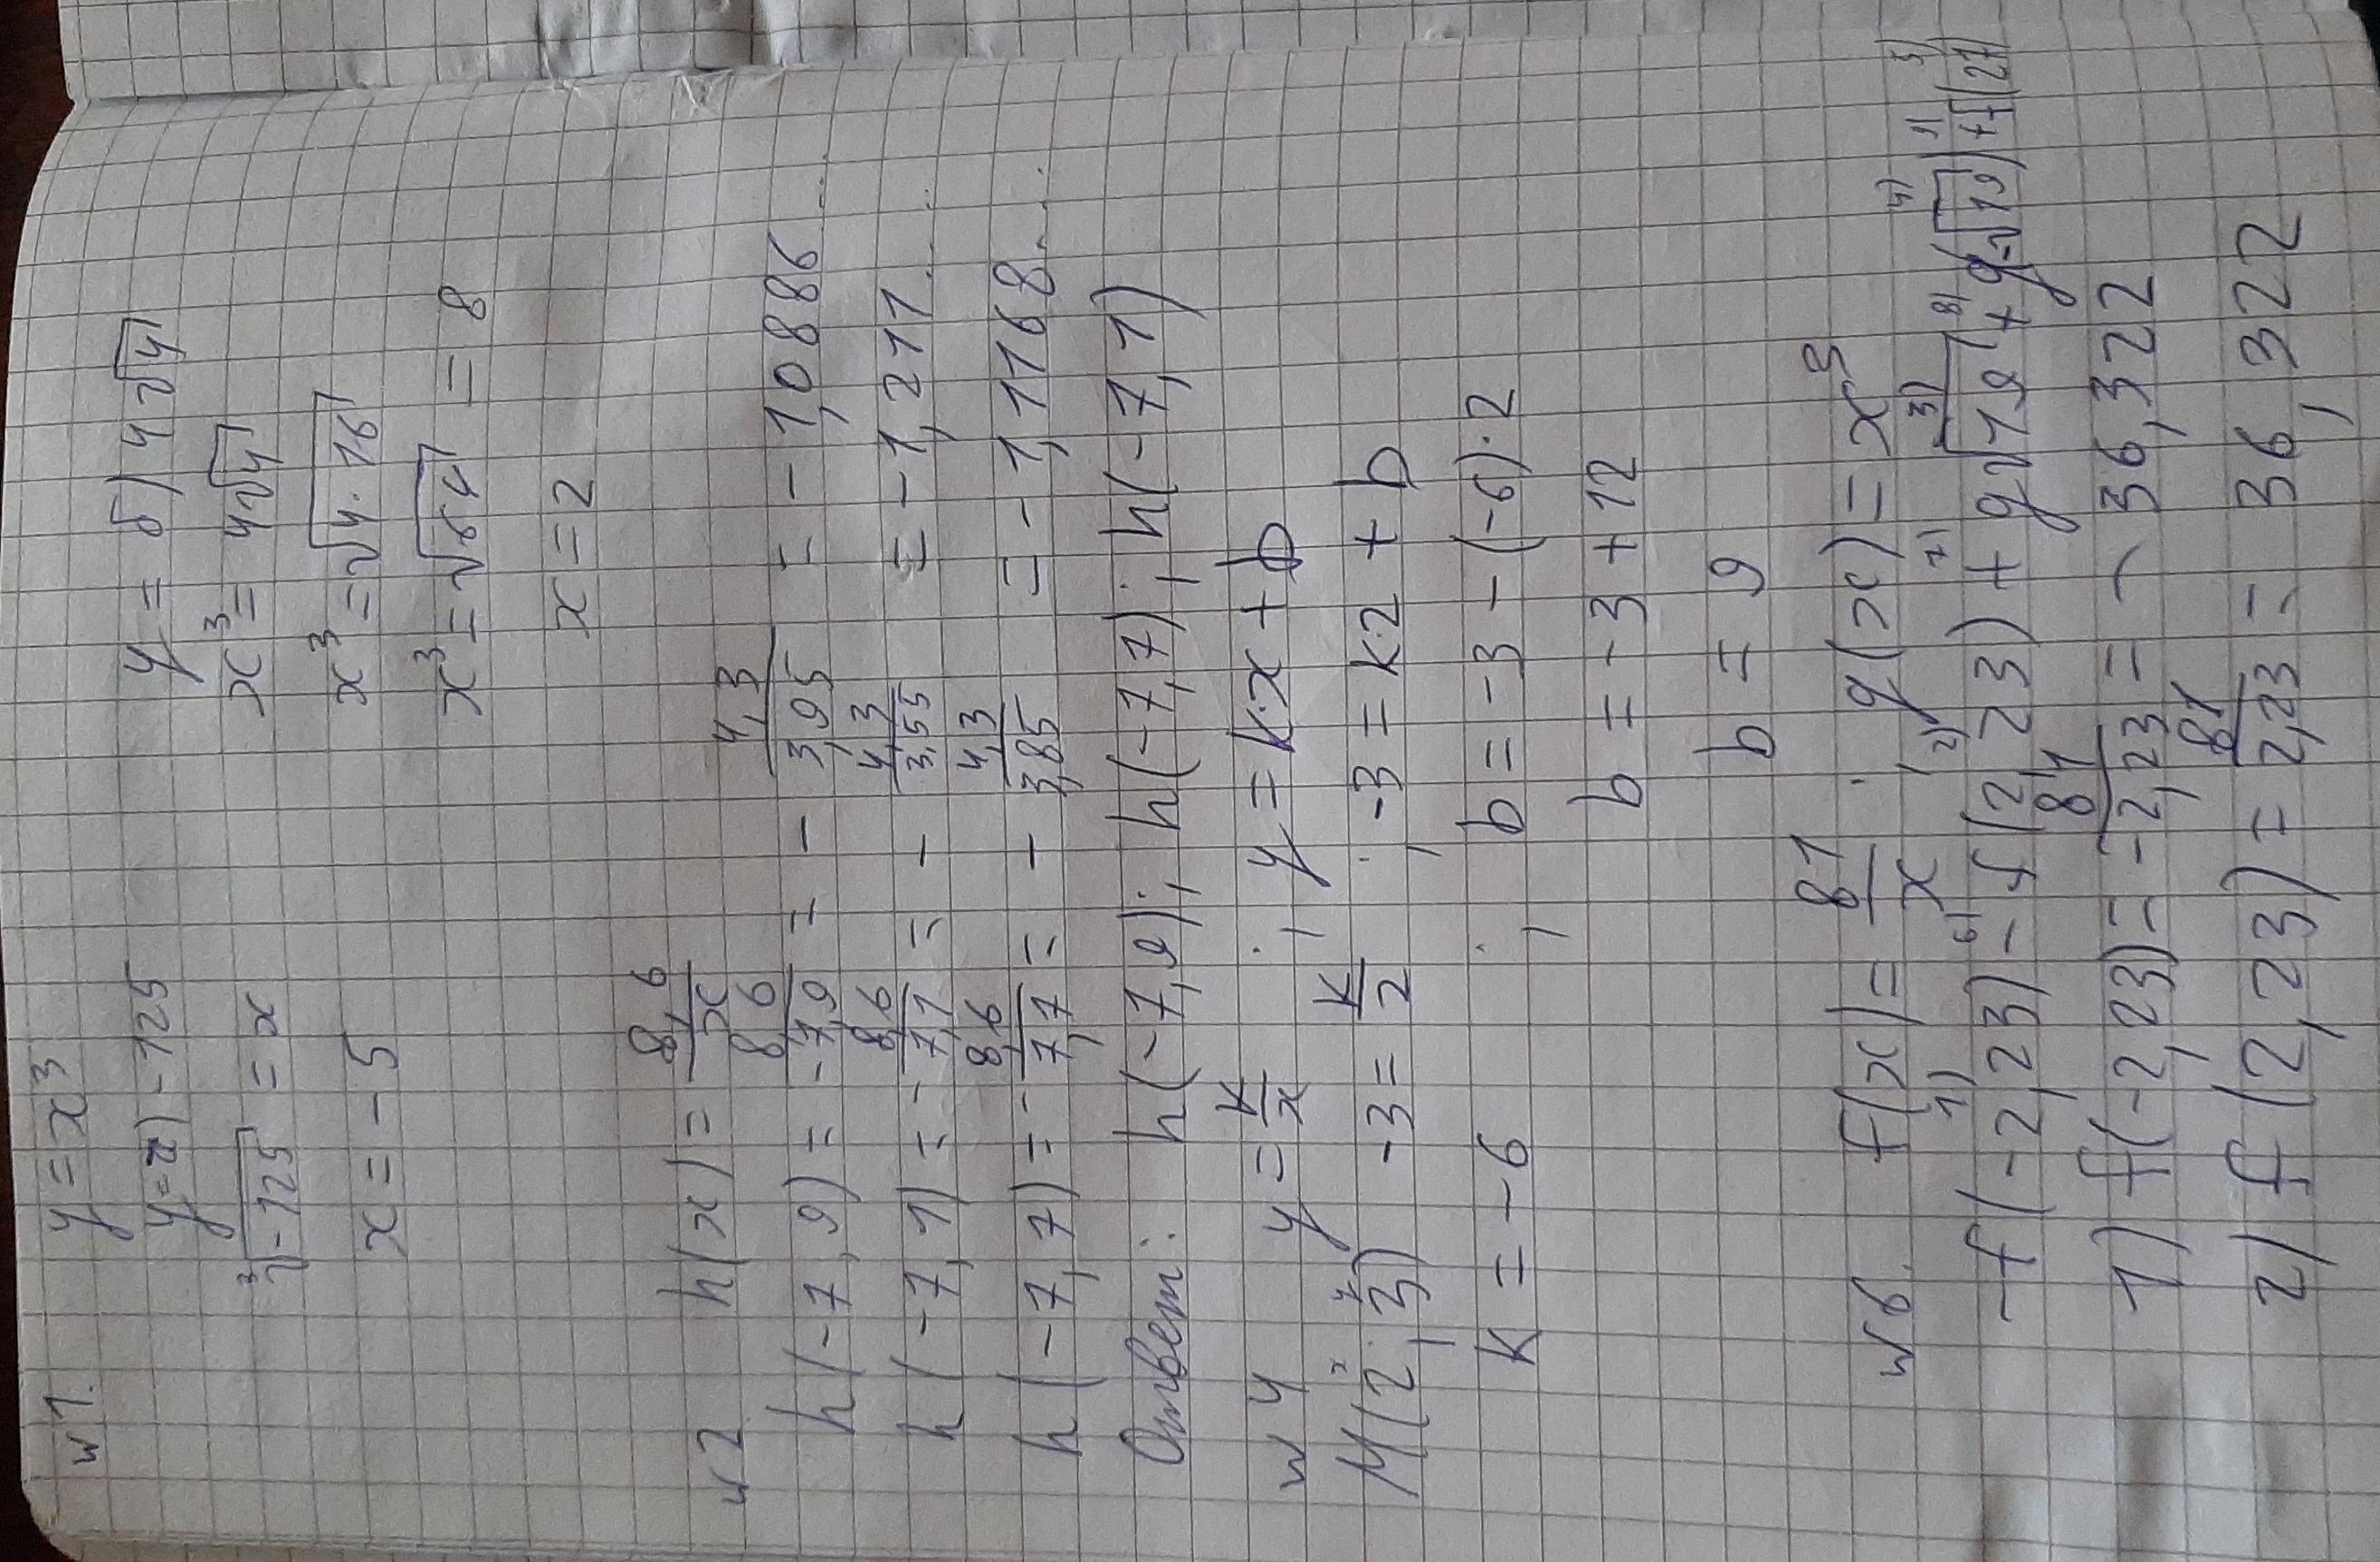 №1. y = x³
y = а) -125 y = б) 4√4
³√-125 = x x³ = 4√4
x = -5 x³ = √4·16
x³ = √64 = 8
x = 2
№2 h(x) = 8,6/x
h(-7,9) = 8,6/-7,9 = - 4,3/3,95 = -1,0886...
h(-7,1) = - 8,6/7,1 = - 4,3/3,55 = -1,211...
h(-7,7) = - 8,6/7,7 = - 4,3/3,85 = -1,1168...
Ответ: h(-7,9); h(-7,7); h(-7,1)
№4 y = k/x ; y = k·x + b
M(2;3) -3 = k/2 ; -3 = k·2 + b
k = -6 ; b = -3 - (-6)·2
b = -3 + 12
b = 9
№6. f(x) = 81/x ; g(x) = x⁹
-f(-2,23) - f(2,23) + g(√19) + g(-√19) + f(27)
1) f(-2,23) = 81/-2,23 = -36,322
2) f(2,23) = 81/2,23 = 36,322